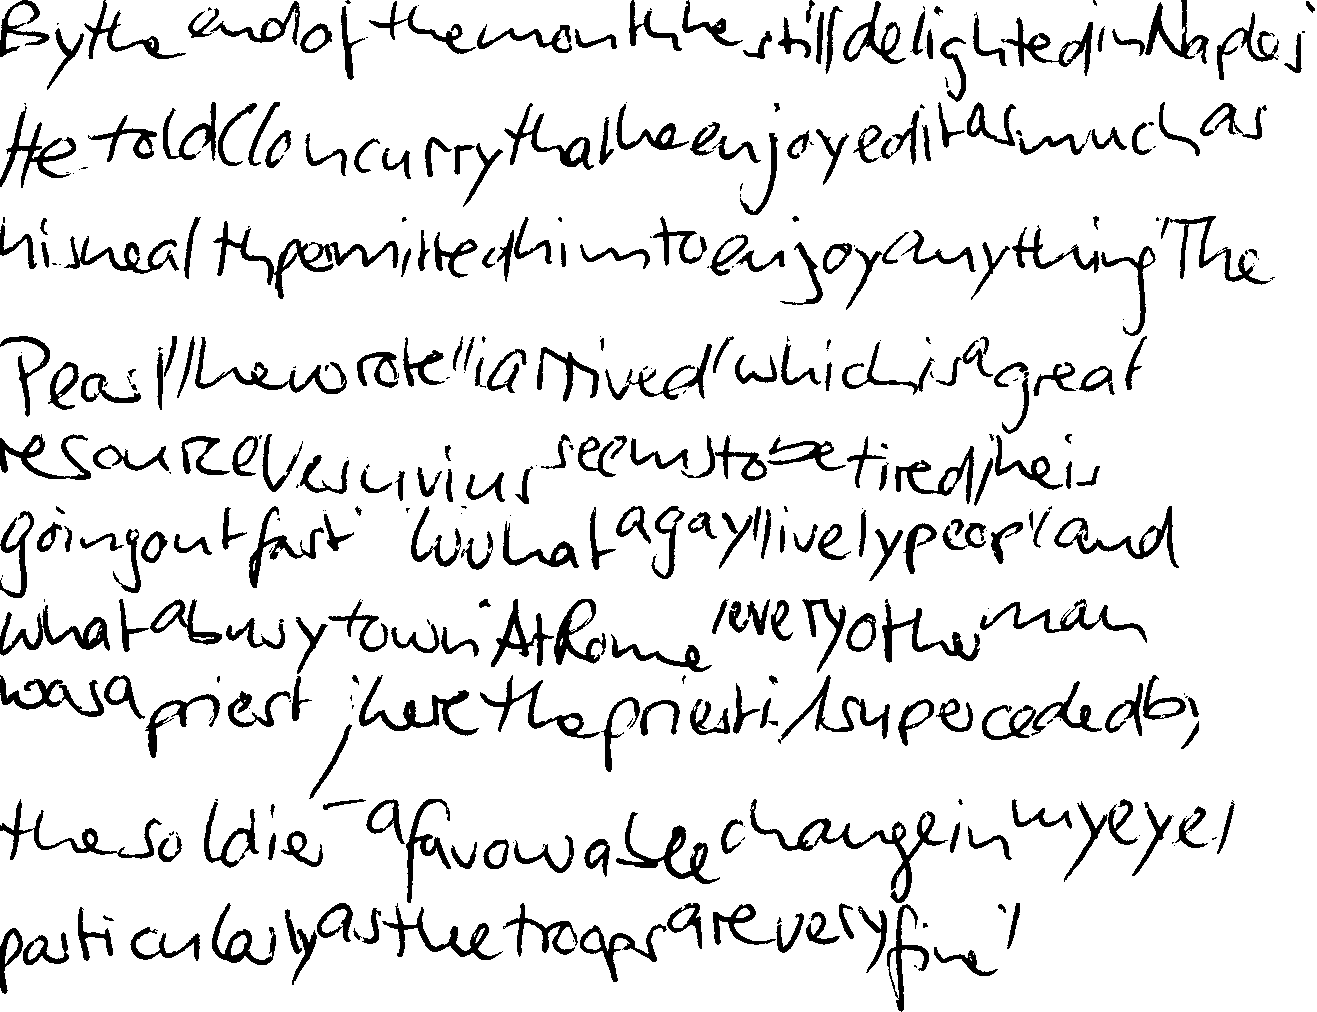 By the end of the month he still delighted in Naples.
He told Cloncurry that he enjoyed it as much as
his health permitted him to enjoy anything. "The
Pearl," he wrote, "is arrived, which is a great
resource. Vesuvius seems to be tired; he is
going out fast. What a gay, lively people, and
what a busy town. At Rome, every other man
was a priest; here the priest is superceded by
the soldier - a favourable change in my eyes,
particularly as the troops are very fine."